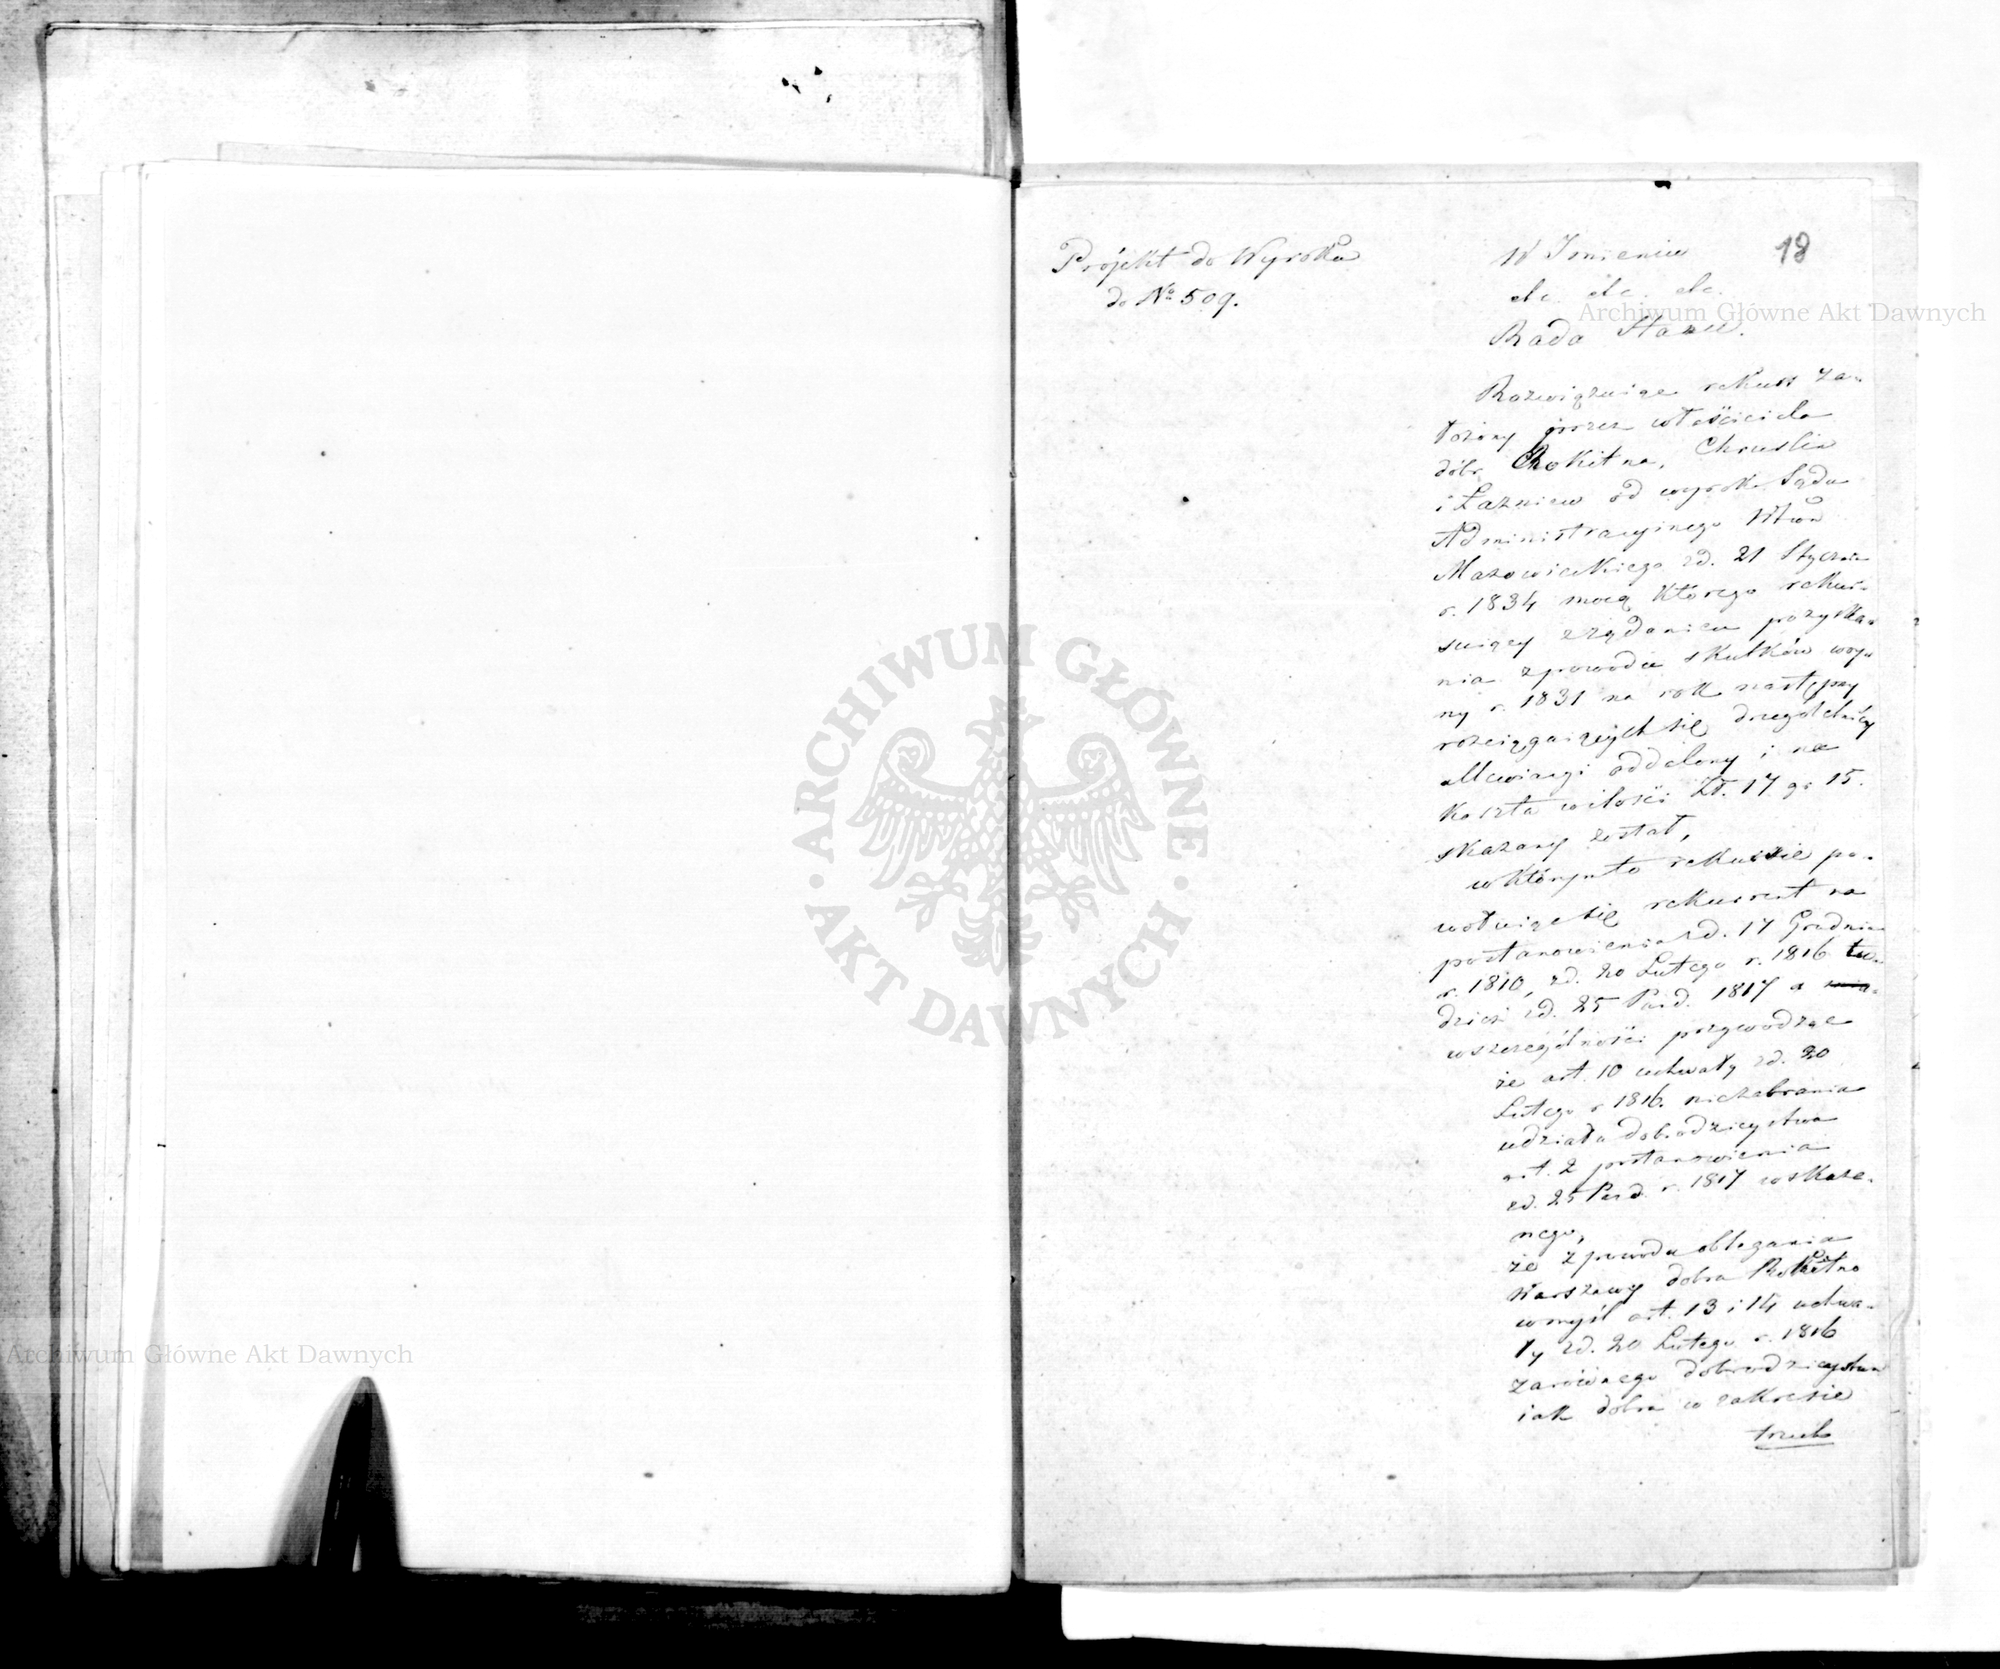 18
Projekt do Wyroku
do No 509.
W Imieniu
etc. etc. etc.
Rada Stanu.
Rozwiązuiąc rekurs za-
łożony przez właściciela
dóbr Rokitna, Chruslin
i Łaźniew od wyroku Sądu
Administracyinego Wtwa
Mazowieckiego zd. 21 Stycznia
r. 1834 mocą którego rekur-
suiący z żądaniem pozyska-
nia z powodu skutków woy-
ny r. 1831 na rok następny
rozciągaiących się
allewiacyi oddalony i na
koszta wilości Zł. 17 gr 15.
skazany został,
w którymto rekursie po-
wołuiąc się rekurrent na
postanowienia zd. 17 Grudnia
r. 1810, zd. 20 Lutego r. 1816 tu-
dzież zd. 25 Paźd. 1817 a
wszczególności przywodząc
że art. 10 uchwały zd. 20
Lutego r 1816. niezabrania
udziału dobrodzieystwa
art. 2 postanowienia
zd. 25 Paźd. r. 1817 wskaza-
nego,
że z powodu oblegania
Warszawy dobra Rokitno
wmyśl art. 13 i 14 uchwa-
ły zd. 20 Lutego r. 1816
zarównego dobrodzieystwa
iak dobra w zakresie
trzech
Archiwum Główne Akt Dawnych
Archiwum Główne Akt Dawnych
ARCHIWUM GŁÓWNE
AKT DAWNYCH